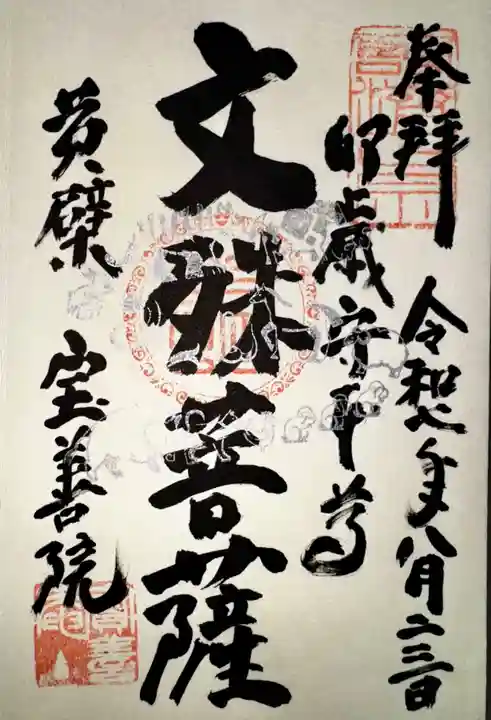 奉拜
令和七年八月二三日
卯歳守本尊
文殊菩薩
黄檗 宝善院